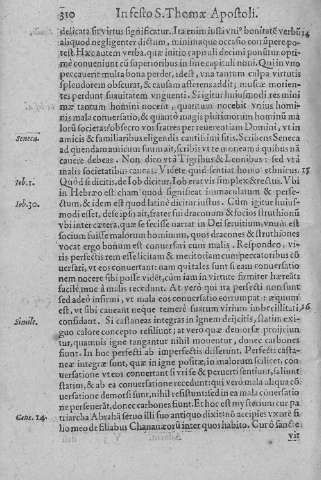 310 In festo S. Thomæ Apostoli.
delicata sit virtus significatur. Ita enim iusta vni⁹ bonitaté verbũ 14
aliquod negligenter dictum, minimaque occasio corrũpere po-
test. Hæc autem verba, quæ initio capituli decimi ponũtur opti-
me conueniunt cũ superioribus in fine capituli noni. Qui in vno
peccauerit multa bona perdet, idest, vna tantum culpa virtutis
splendorem obscurat, & causam asserens addit, muscæ morien-
tes perdunt suauitatem vnguenti. Si igitur huiusmodi res mini-
mæ tantum homini nocent, quantum nocebit vnius homi-
nis mala conuersatio, & quantò magis plurium hominũ ma-
lorũ societas? obsecro vos fratres per reuerentiam Domini, vt in
amicis & familiaribus eligendis cauti sitis. Scribens Seneca
Seneca. ad quendam amicum suum ait, scribis vt te moneam à quibus nã
cauere debeas. Non dico vt à Tigribus & Leonibus: sed vt à
malis societatibus caueas. Videte quid sentiat homo ethnicus. 15
Iob. 1. Quod si dicitis, de Iob dicitur, Iob erat vir simplex & rectus. Vbi
in Hebræo est cham quod significat immaculatum & perfe-
Iob. 30. ctum, & idem est quod latinè dicitur iustus. Cùm igitur huius-
modi esset, de se ipso ait, frater fui draconum & socios struthionũ
vbi inter cætera, quæ se fecisse narrat in Dei seruitium, vnum est
socium fuisse malorum hominum, quos dracones & struthiones
vocat ergo bonum est conuersari cum malis. Respondeo, vi-
ris perfectis rem esse licitam & meritoriam cum peccatoribus cõ
uersari, vt eos conuertant: nam qui tales sunt
nocere sibi posse vidét, cùm iam in virtute firmiter
facilè inuè à malis recedant. At verò qui ita perfecti non sunt
sed adeò infirmi, vt mala eos conuersatio corrumpat: æquum
est, vt sibi caueant neque temerè suarum virium imbecillitati 16
Simile. confidant. Si castaneas integras in ignem deijcitis, statim exi-
guo calore concepto resiliunt; at verò quæ demorsæ projiciun
tur, quamuis igne tangantur nihil mouentur, donec carbones
fiunt. In hoc perfecti ab imperfectis differunt. Perfecti casta-
neæ integræ sunt, quæ in igne positæ, in malorum scilicet, con-
uersatione vt eos conuertant si viris se & peruerti sentiunt, saliunt
statim, & ab ea conuersatione recedunt: qui verò mala aliqua cõ
uersatione demorsi sunt, nihil resistunt: sed in ea mala conuersatio
ne perseuerãt, donec carbones fiunt. Et hoc est mysterium cur pa
Gene. 24. triarcha Abrahã seruo illi suo antiquo dixit nõ accipies vxoré fi
lio meo de filiabus Chananæorũ inter quos habito. Cur ô sancte
vir